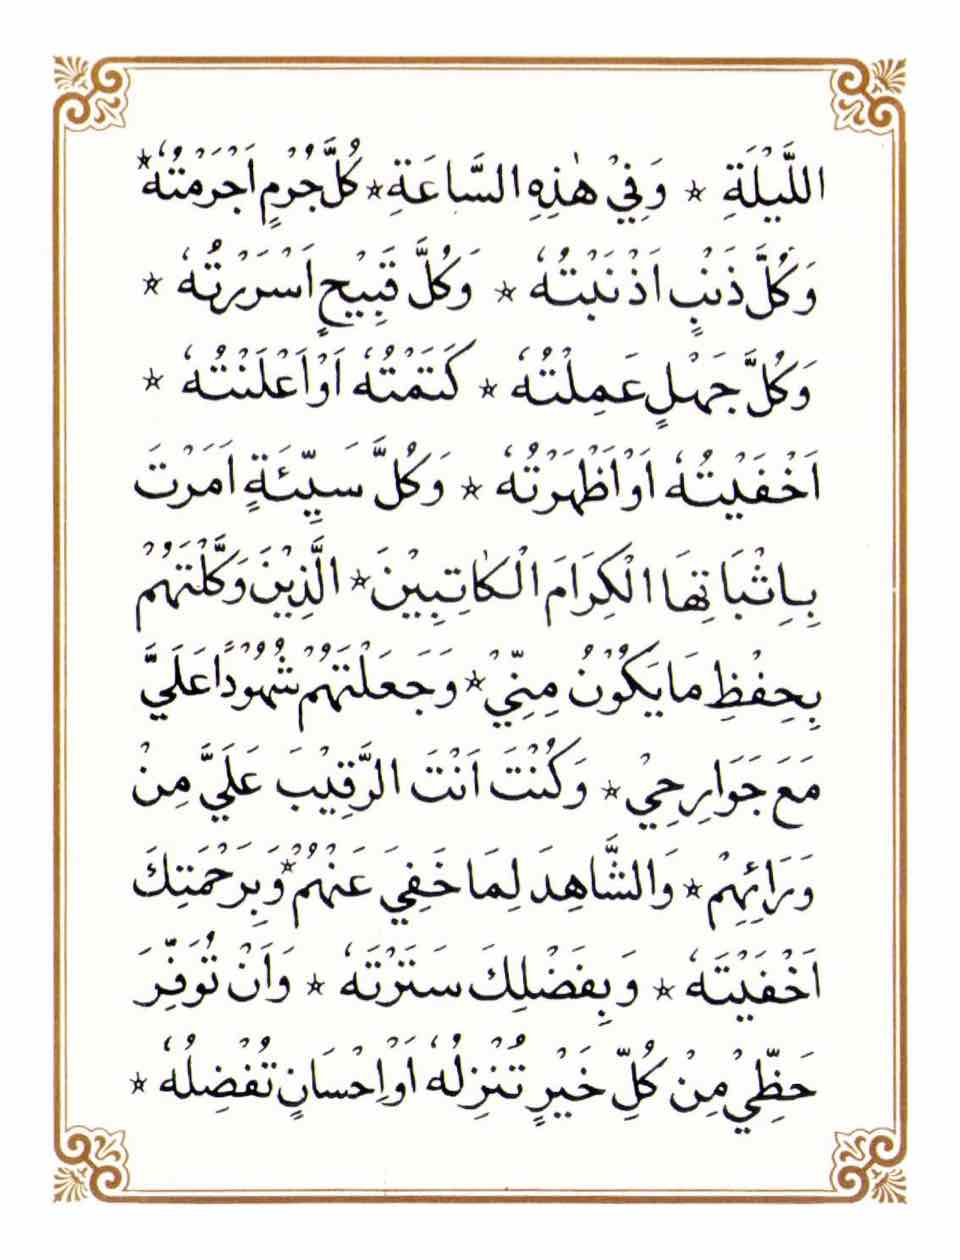 اللَّيْلَةِ ☆ وَفِيْ هٰذِهِ السَّاعَةِ ☆ كُلَّ جُرْمٍ اَجْرَمْتُهٗ ☆
وَكُلَّ ذَنْبٍ اَذْنَبْتُهٗ ☆ وَكُلَّ قَبِيْحٍ اَسْرَرْتُهٗ ☆
وَكُلَّ جَهْلٍ عَمِلْتُهٗ ☆ كَتَمْتُهٗ اَوْ اَعْلَنْتُهٗ ☆
اَخْفَيْتُهٗ اَوْ اَظْهَرْتُهٗ ☆ وَكُلَّ سَيِّئَةٍ اَمَرْتَ
بِاِثْبَاتِهَا الْكِرَامَ الْكَاتِبِيْنَ ☆ الَّذِيْنَ وَكَّلْتَهُمْ
بِحِفْظِ مَا يَكُوْنُ مِنِّيْ ☆ وَجَعَلْتَهُمْ شُهُوْدًا عَلَيَّ
مَعَ جَوَارِحِيْ ☆ وَكُنْتَ اَنْتَ الرَّقِيْبَ عَلَيَّ مِنْ
وَرَائِهِمْ ☆ وَالشَّاهِدَ لِمَا خَفِيَ عَنْهُمْ ☆ وَبِرَحْمَتِكَ
اَخْفَيْتَهٗ ☆ وَبِفَضْلِكَ سَتَرْتَهٗ ☆ وَاَنْ تُوَفِّرَ
حَظِّيْ مِنْ كُلِّ خَيْرٍ تُنْزِلُهٗ اَوْ اِحْسَانٍ تُفْضِلُهٗ ☆